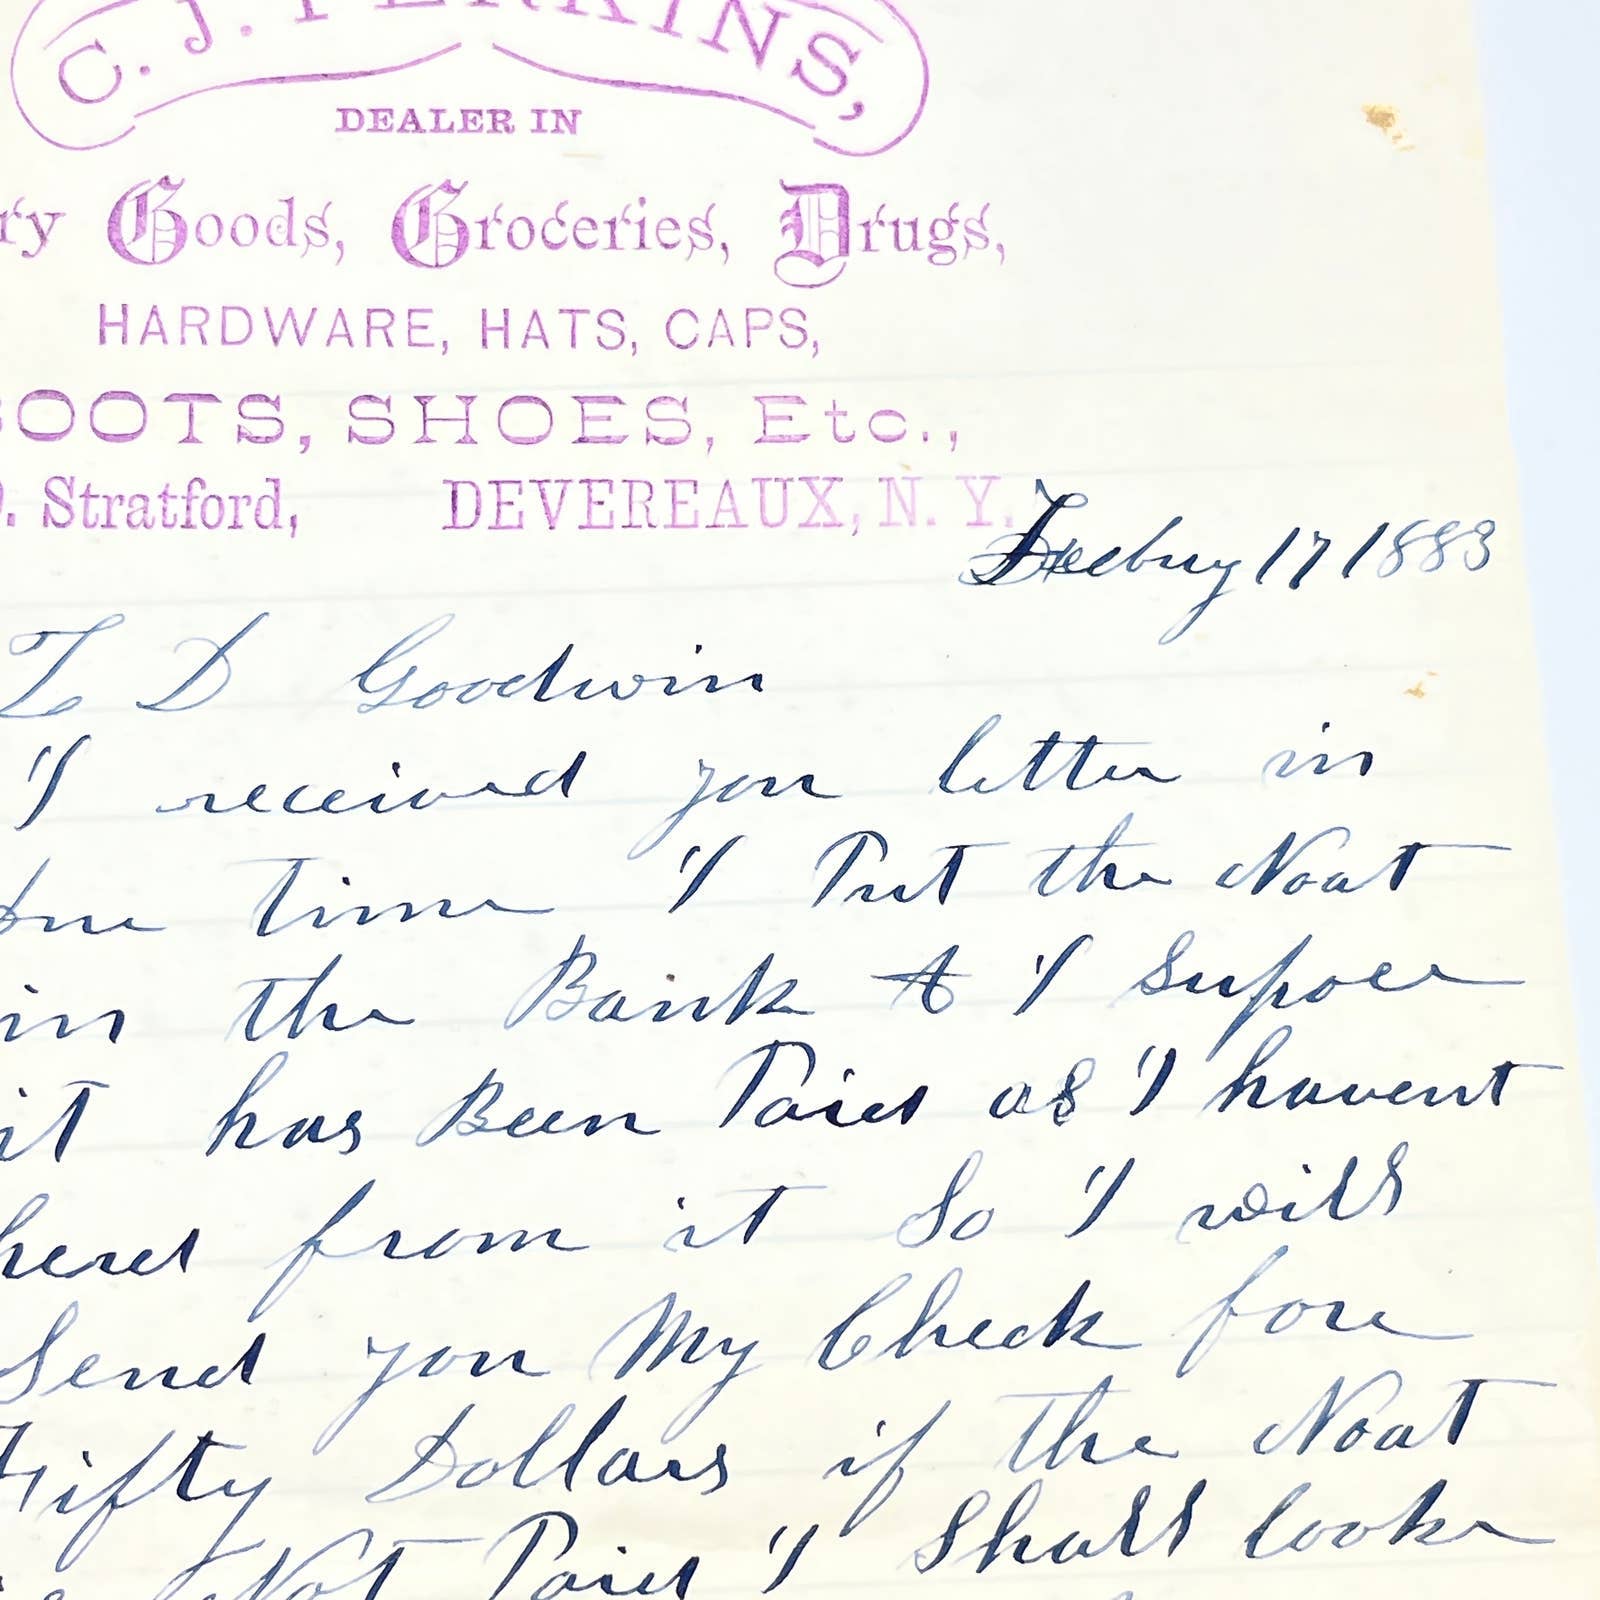 C. J. PERKINS,
DEALER IN
ry Goods, Groceries, Drugs,
HARDWARE, HATS, CAPS,
BOOTS, SHOES, Etc.,
O. Stratford, DEVEREAUX, N. Y.
Feebuy 17 1883
D Goodwin
I received you letter in
Due Time I Put the Noat
in the Bank & I Supose
it has Been Paid as I havent
herd from it So I will
Send you My Check fore
Fifty Dollars if The Noat
Not Paid I Shall looke